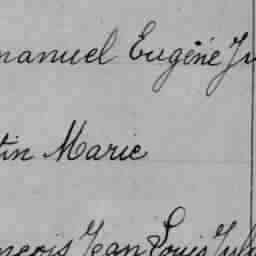 manuel Eugène Ju
tin Marie
nçois Jean Louis Jul